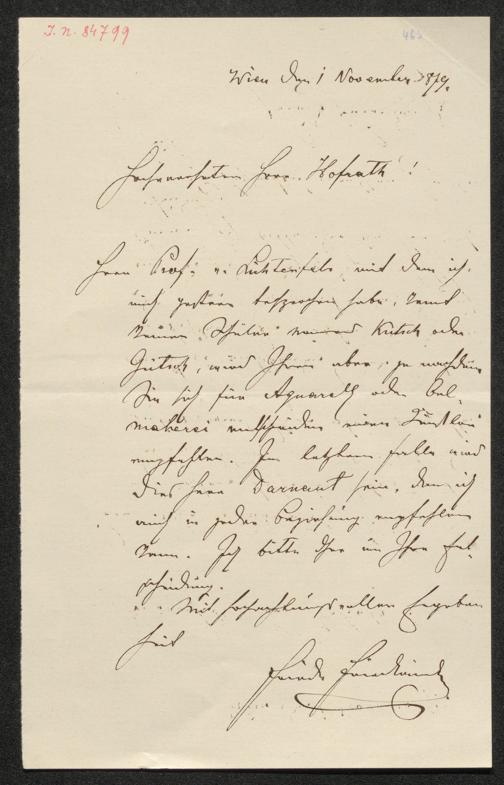 I. N. 84799
Wien den 1 November 1879.
Hochverehrter Herr Hofrath!
Herr Prof: v. Lichtenfels, mit dem ich
mich gestern besprochen habe, kennt
keinen Schüler namens Kutsch oder
Gutsch, wird Ihnen aber, je nachdem
Sie sich für Aquarell oder Oel-
malerei entscheiden einen Künstler
empfehlen. Im letzteren Falle wird
dies Herr Darnaut sein, den ich
auch in jeder Beziehung empfehlen
kann. Ich bitte Sie um Ihre Ent-
scheidung.
Mit hochachtungsvoller Ergeben
heit
Friedr Friedländer